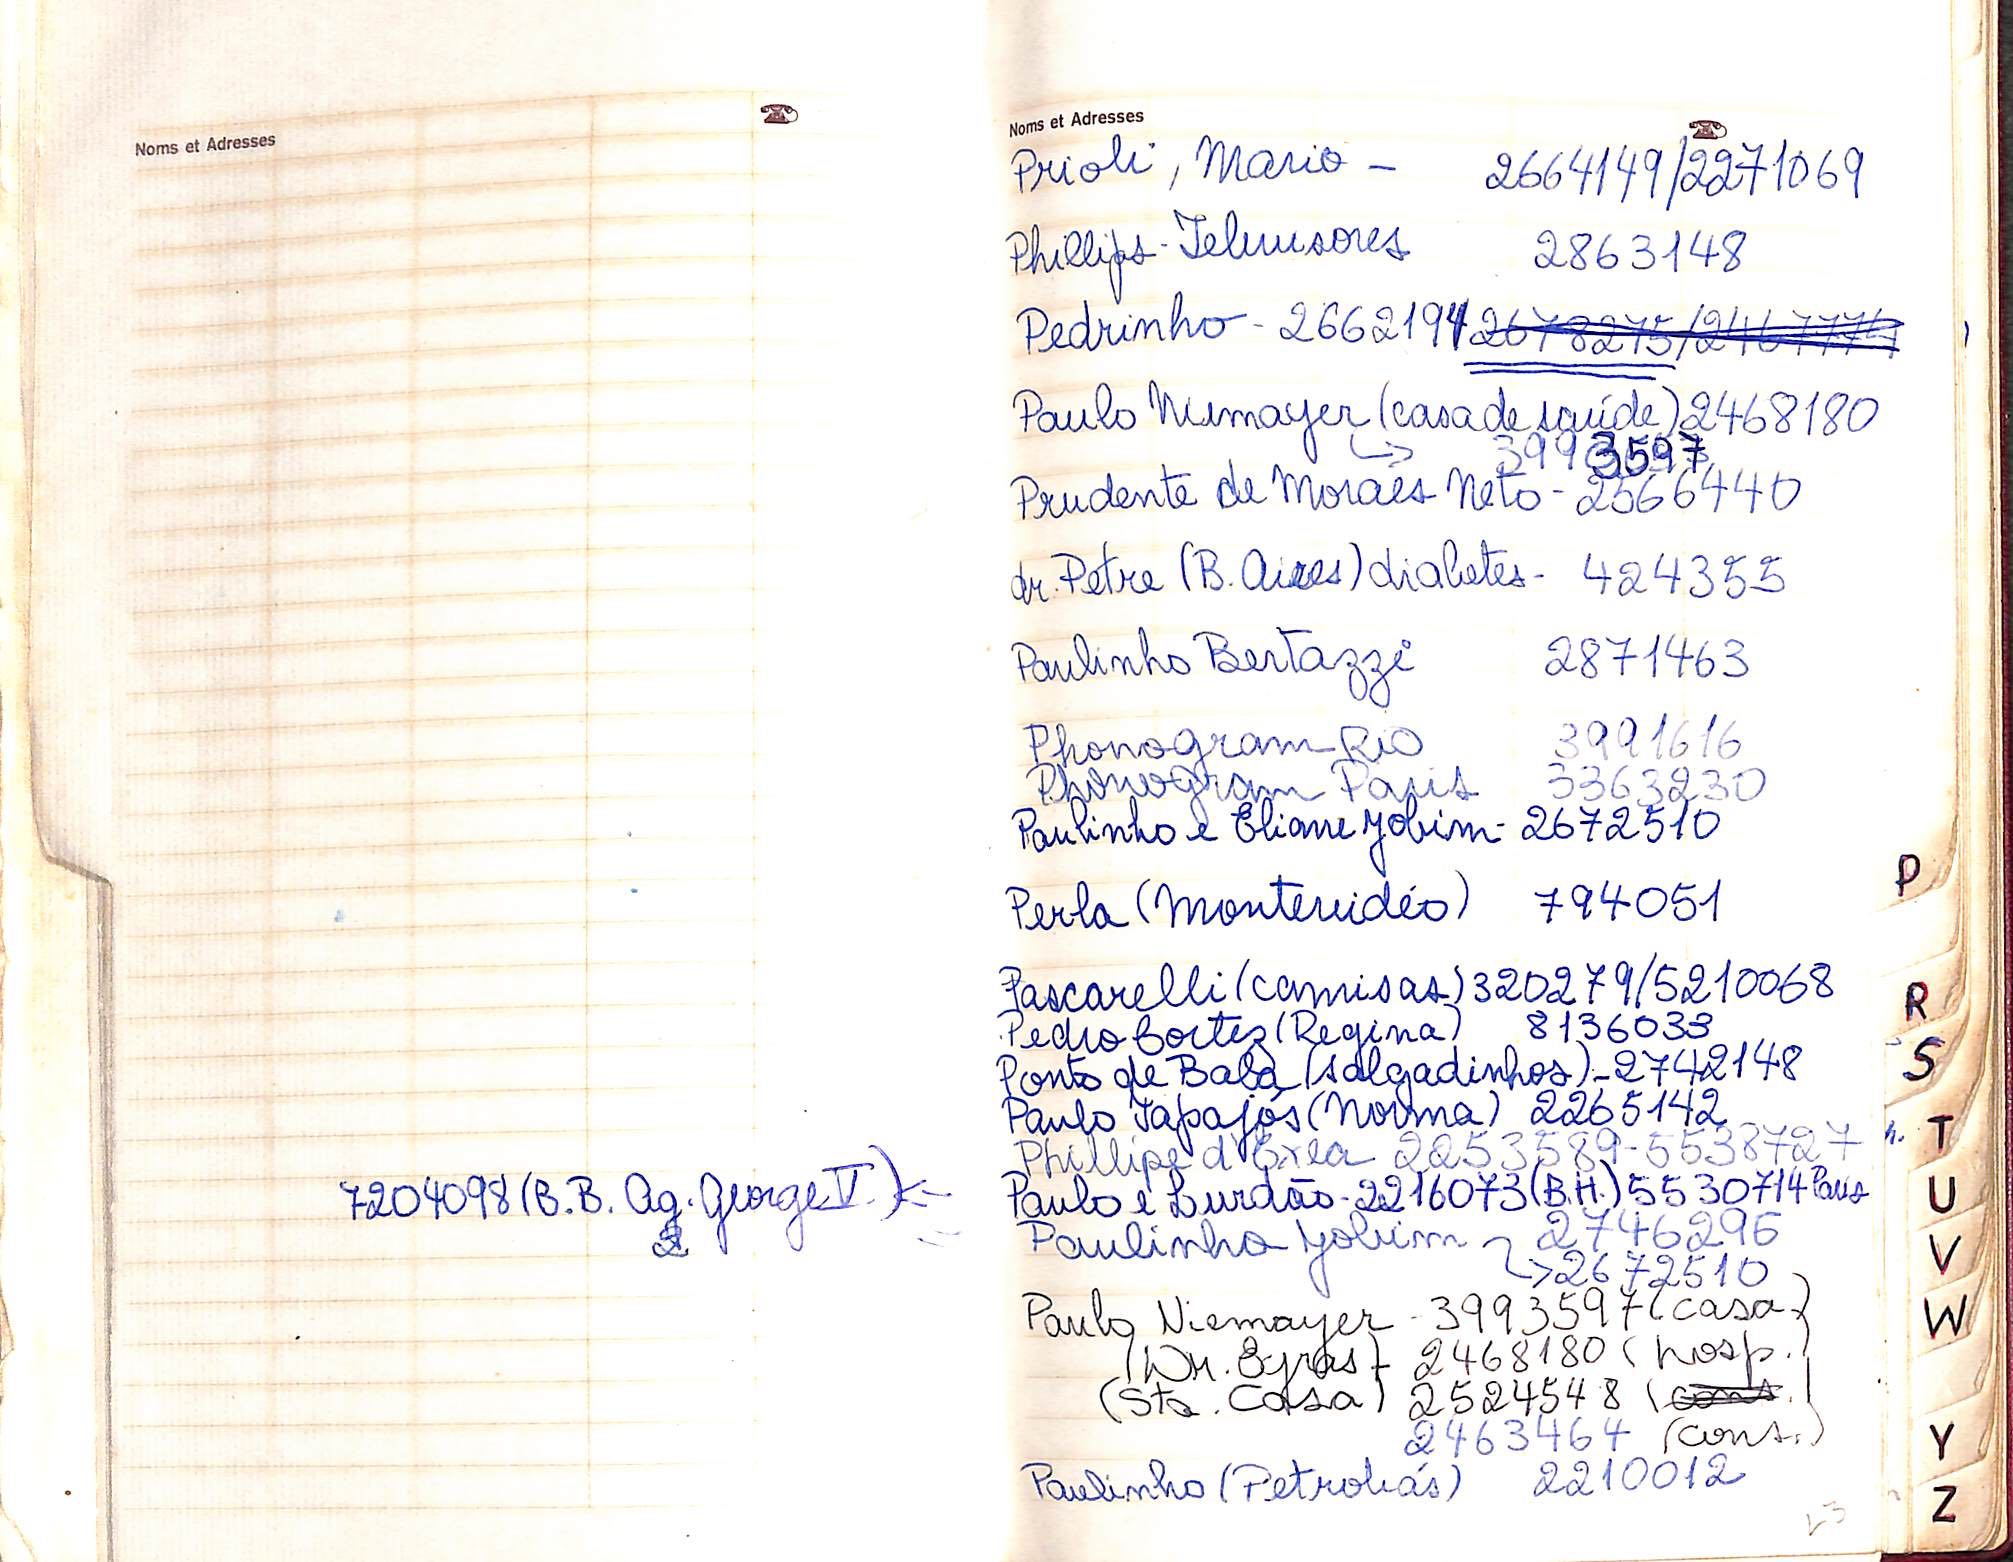 Noms et Adresses
7204098 (B.B. Ag. George V.)
Noms et Adresses
Prioli, Mario - 2664149/2271069
Phillips - Televisores 2863148
Pedrinho - 2662194 2678275/
Paulo Niemayer (casa de saúde) 2468180
3597
Prudente de Moraes Neto - 2566440
dr. Petre (B. Aires) diabetes - 424355
Paulinho Bertazzi 2871463
Phonogram Rio 3991616
Phonogram Paris 3363230
Paulinho e Eliane Jobim - 2672510
Perla (Montevidéo) 794051
Pascarelli (camisas) 320279/5210068
Pedro Cortez (Regina) 8136033
Ponto de Bala (salgadinhos) - 2742148
Paulo Tapajós (Norma) 2265142
Phillipe d' 2253589 - 5538727
Paulo e Lurdão - 2216073 (B.H.) 5530714 Paris
Paulinho Jobim 2746296
→ 2672510
Paulo Niemayer - 3993597 (casa)
(Dr. Eyras) - 2468180 (hosp.)
(Sta. Casa) 2524548 (cons.)
2463464 (cons.)
Paulinho (Petrobás) 2210012
P
R
S
T
U
V
W
Y
Z